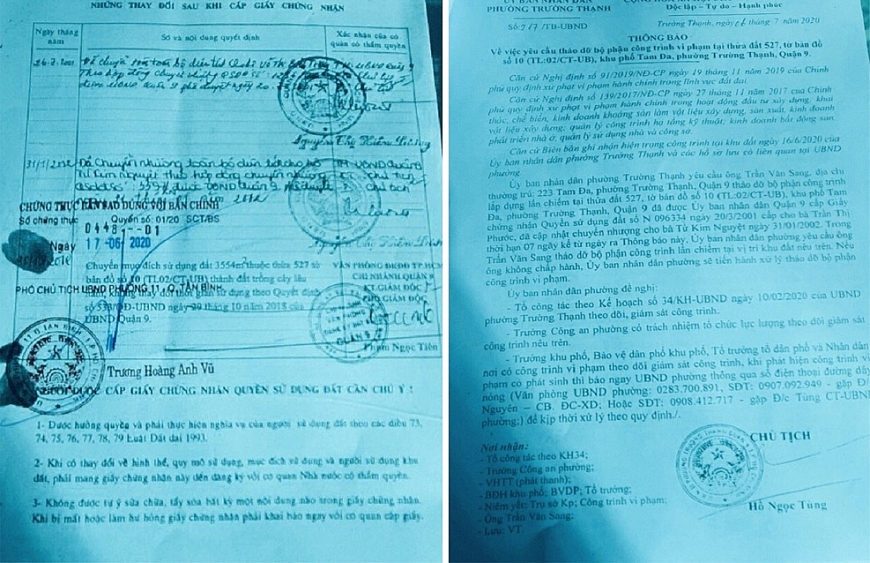 NHỮNG THAY ĐỔI SAU KHI CẤP GIẤY CHỨNG NHẬN
Ngày tháng năm
Số và nội dung quyết định
Xác nhận của cơ quan có thẩm quyền
31/1/2002 Đã chuyển nhượng toàn bộ diện tích cho bà
Từ Kim Nguyệt theo hợp đồng chuyển nhượng
CHỨNG THỰC BẢN SAO ĐÚNG VỚI BẢN CHÍNH
Số chứng thực
Quyển số: 01/20 SCT/BS
04481--01
Ngày
17-06-2020
Chuyển mục đích sử dụng đất 3554m² thuộc thửa 527
tờ bản đồ số 10 (TL.02/CT-UB) thành đất trồng cây lâu
PHÓ CHỦ TỊCH UBND PHƯỜNG 11, Q. TÂN BÌNH
không thay đổi thời gian sử dụng theo Quyết định
/QĐ-UBND ngày tháng 10 năm 2013 của
UBND Quận 9.
VĂN PHÒNG ĐKĐĐ TP.HCM
CHI NHÁNH QUẬN 9
KT GIÁM ĐỐC
PHÓ GIÁM ĐỐC
Phạm Ngọc Tiên
Trương Hoàng Anh Vũ
CẤP GIẤY CHỨNG NHẬN QUYỀN SỬ DỤNG ĐẤT CẦN CHÚ Ý :
1- Được hưởng quyền và phải thực hiện nghĩa vụ của người sử dụng đất theo các điều 73,
74, 75, 76, 77, 78, 79 Luật Đất đai 1993.
2- Khi có thay đổi về hình thể, quy mô sử dụng, mục đích sử dụng và người sử dụng khu
đất, phải mang giấy chứng nhận này đến đăng ký với cơ quan Nhà nước có thẩm quyền.
3- Không được tự ý sửa chữa, tẩy xóa bất kỳ một nội dung nào trong giấy chứng nhận.
Khi bị mất hoặc làm hư hỏng giấy chứng nhận phải khai báo ngay với cơ quan cấp giấy.
ỦY BAN NHÂN DÂN
PHƯỜNG TRƯỜNG THẠNH
Độc lập - Tự do - Hạnh phúc
Số: 217/TB-UBND
Trường Thạnh, ngày 01 tháng 7 năm 2020
THÔNG BÁO
Về việc yêu cầu tháo dỡ bộ phận công trình vi phạm tại thửa đất 527, tờ bản đồ
số 10 (TL:02/CT-UB), khu phố Tam Đa, phường Trường Thạnh, Quận 9.
Căn cứ Nghị định số 91/2019/NĐ-CP ngày 19 tháng 11 năm 2019 của Chính
phủ quy định xử phạt vi phạm hành chính trong lĩnh vực đất đai.
Căn cứ Nghị định số 139/2017/NĐ-CP ngày 27 tháng 11 năm 2017 của Chính
phủ quy định xử phạt vi phạm hành chính trong hoạt động đầu tư xây dựng, khai
thác, chế biến, kinh doanh khoáng sản làm vật liệu xây dựng, sản xuất, kinh doanh
vật liệu xây dựng; quản lý công trình hạ tầng kỹ thuật; kinh doanh bất động sản,
phát triển nhà ở, quản lý sử dụng nhà và công sở.
Căn cứ Biên bản ghi nhận hiện trạng công trình tại khu đất ngày 16/6/2020 của
Ủy ban nhân dân phường Trường Thạnh và các hồ sơ có liên quan tại UBND
phường.
Ủy ban nhân dân phường Trường Thạnh yêu cầu ông Trần Văn Sang, địa chỉ
thường trú: 223 Tam Đa, phường Trường Thạnh, Quận 9 tháo dỡ bộ phận công trình
lắp dựng lấn chiếm tại thửa đất 527, tờ bản đồ số 10 (TL:02/CT-UB), khu phố Tam
Đa, phường Trường Thạnh, Quận 9 đã được Ủy ban nhân dân Quận 9 cấp Giấy
chứng nhận Quyền sử dụng đất số N 096334 ngày 20/3/2001 cấp cho bà Trần Thị
Phước, đã cập nhật chuyển nhượng cho bà Từ Kim Nguyệt ngày 31/01/2002. Trong
thời hạn 07 ngày kể từ ngày ra Thông báo này, Ủy ban nhân dân phường yêu cầu ông
Trần Văn Sang tháo dỡ bộ phận công trình lấn chiếm tại vị trí khu đất nêu trên. Nếu
ông không chấp hành, Ủy ban nhân dân phường sẽ tiến hành xử lý tháo dỡ bộ phận
công trình vi phạm.
Ủy ban nhân dân phường đề nghị:
- Tổ công tác theo Kế hoạch số 34/KH-UBND ngày 10/02/2020 của UBND
phường Trường Thạnh theo dõi, giám sát công trình.
- Trưởng Công an phường có trách nhiệm tổ chức lực lượng theo dõi giám sát
công trình nêu trên.
- Trưởng khu phố, Bảo vệ dân phố khu phố, Tổ trưởng tổ dân phố và Nhân dân
nơi có công trình vi phạm theo dõi giám sát công trình, khi phát hiện công trình vi
phạm có phát sinh thì báo ngay UBND phường thông qua số điện thoại đường dây
nóng (Văn phòng UBND phường: 0283.700.891, SĐT: 0907.092.949 - gặp Đ/c
Nguyên - CB. ĐC-XD; Hoặc SĐT: 0908.412.717 - gặp Đ/c Tùng CT-UBND
phường;) để kịp thời xử lý theo quy định./.
Nơi nhận:
- Tổ công tác theo KH34;
- Trưởng Công an phường;
- VHTT (phát thanh);
- BĐH khu phố; BVDP; Tổ trưởng;
- Niêm yết: Trụ sở Kp; Công trình vi phạm;
- Ông Trần Văn Sang;
- Lưu: VT.
CHỦ TỊCH
Hồ Ngọc Tùng